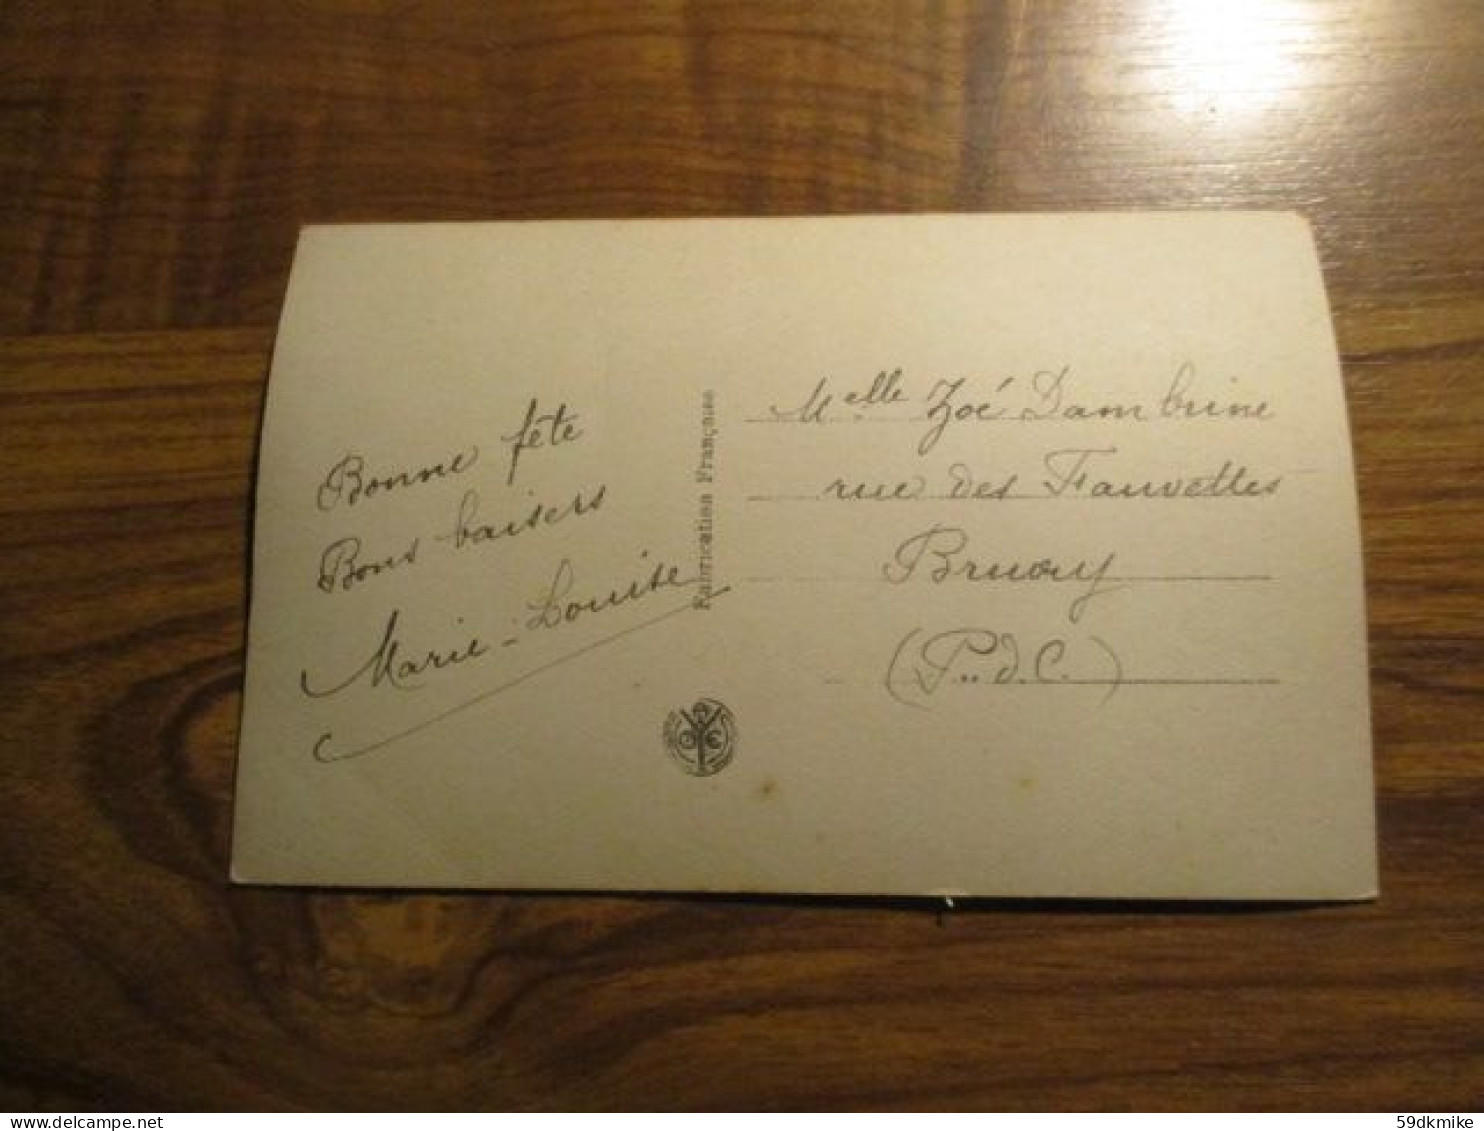 Bonne fête
Bons baisers
Marie-Louise
Fabrication Française
Melle Zoé Dambrine
rue des Fauvettes
Bruay
(P.. d. C.)
www.delcampe.net
59dkmike